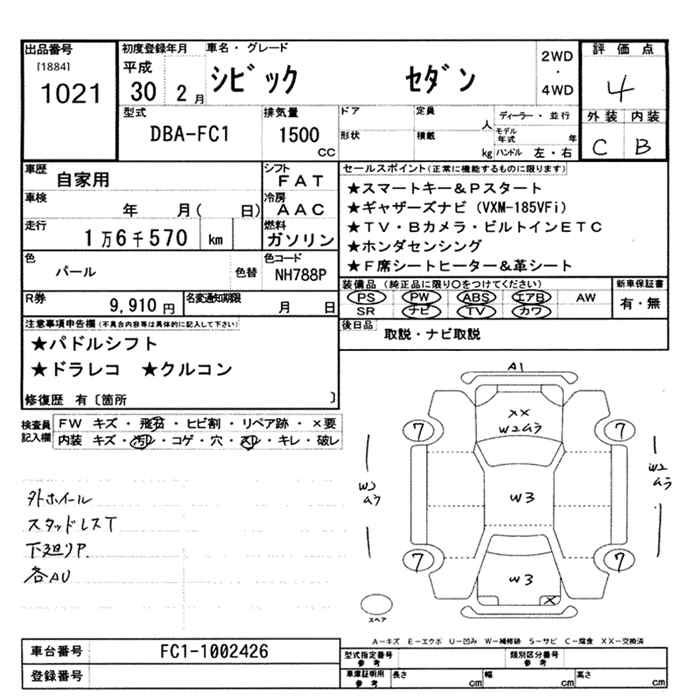 出品番号 初度登録年月 車名・グレード 2WD ・ 4WD 評価点
[1884]
1021
平成
30 2月
シビック セダン
4
型式
DBA-FC1
排気量
1500
cc
ドア 定員 人 ディーラー・並行
形状 積載 kg モデル年式 年
ハンドル 左・右
外装 内装
C B
車歴
自家用
シフト
FAT
車検
年 月( 日)
冷房
AAC
走行
1万6千570 km
燃料
ガソリン
色
パール 色替
色コード
NH788P
R券
9,910円
名変通知期限
月 日
セールスポイント(正常に機能するものに限ります)
★スマートキー&Pスタート
★ギャザーズナビ(VXM-185VFi)
★TV・Bカメラ・ビルトインETC
★ホンダセンシング
★F席シートヒーター&革シート
装備品(純正品に限り○をつけてください) 新車保証書
PS PW ABS エアB AW 有・無
SR ナビ TV カワ
後日品
取説・ナビ取説
注意事項申告欄(不具合内容等は具体的に記入して下さい)
★パドルシフト
★ドラレコ ★クルコン
修復歴 有〔箇所 〕
検査員記入欄
FW キズ・飛石・ヒビ割・リペア跡・×要
内装 キズ・汚レ・コゲ・穴・スレ・キレ・破レ
外ホイール
スタッドレスT
下廻りP.
各AU
A1
XX
W2ムラ
7 7
W2ムラ
W3
W2ムラ
7 7
W3
X
スペア
A-キズ E-エクボ U-凹み W-補修跡 S-サビ C-腐食 XX-交換済
車台番号
FC1-1002426
登録番号
型式指定番号 参考 類別区分番号 参考
車庫証明用 参考 長さ cm 幅 cm 高さ cm